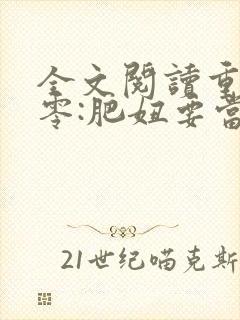 全文閱讀重
零:肥妞要當
21世纪喵克斯